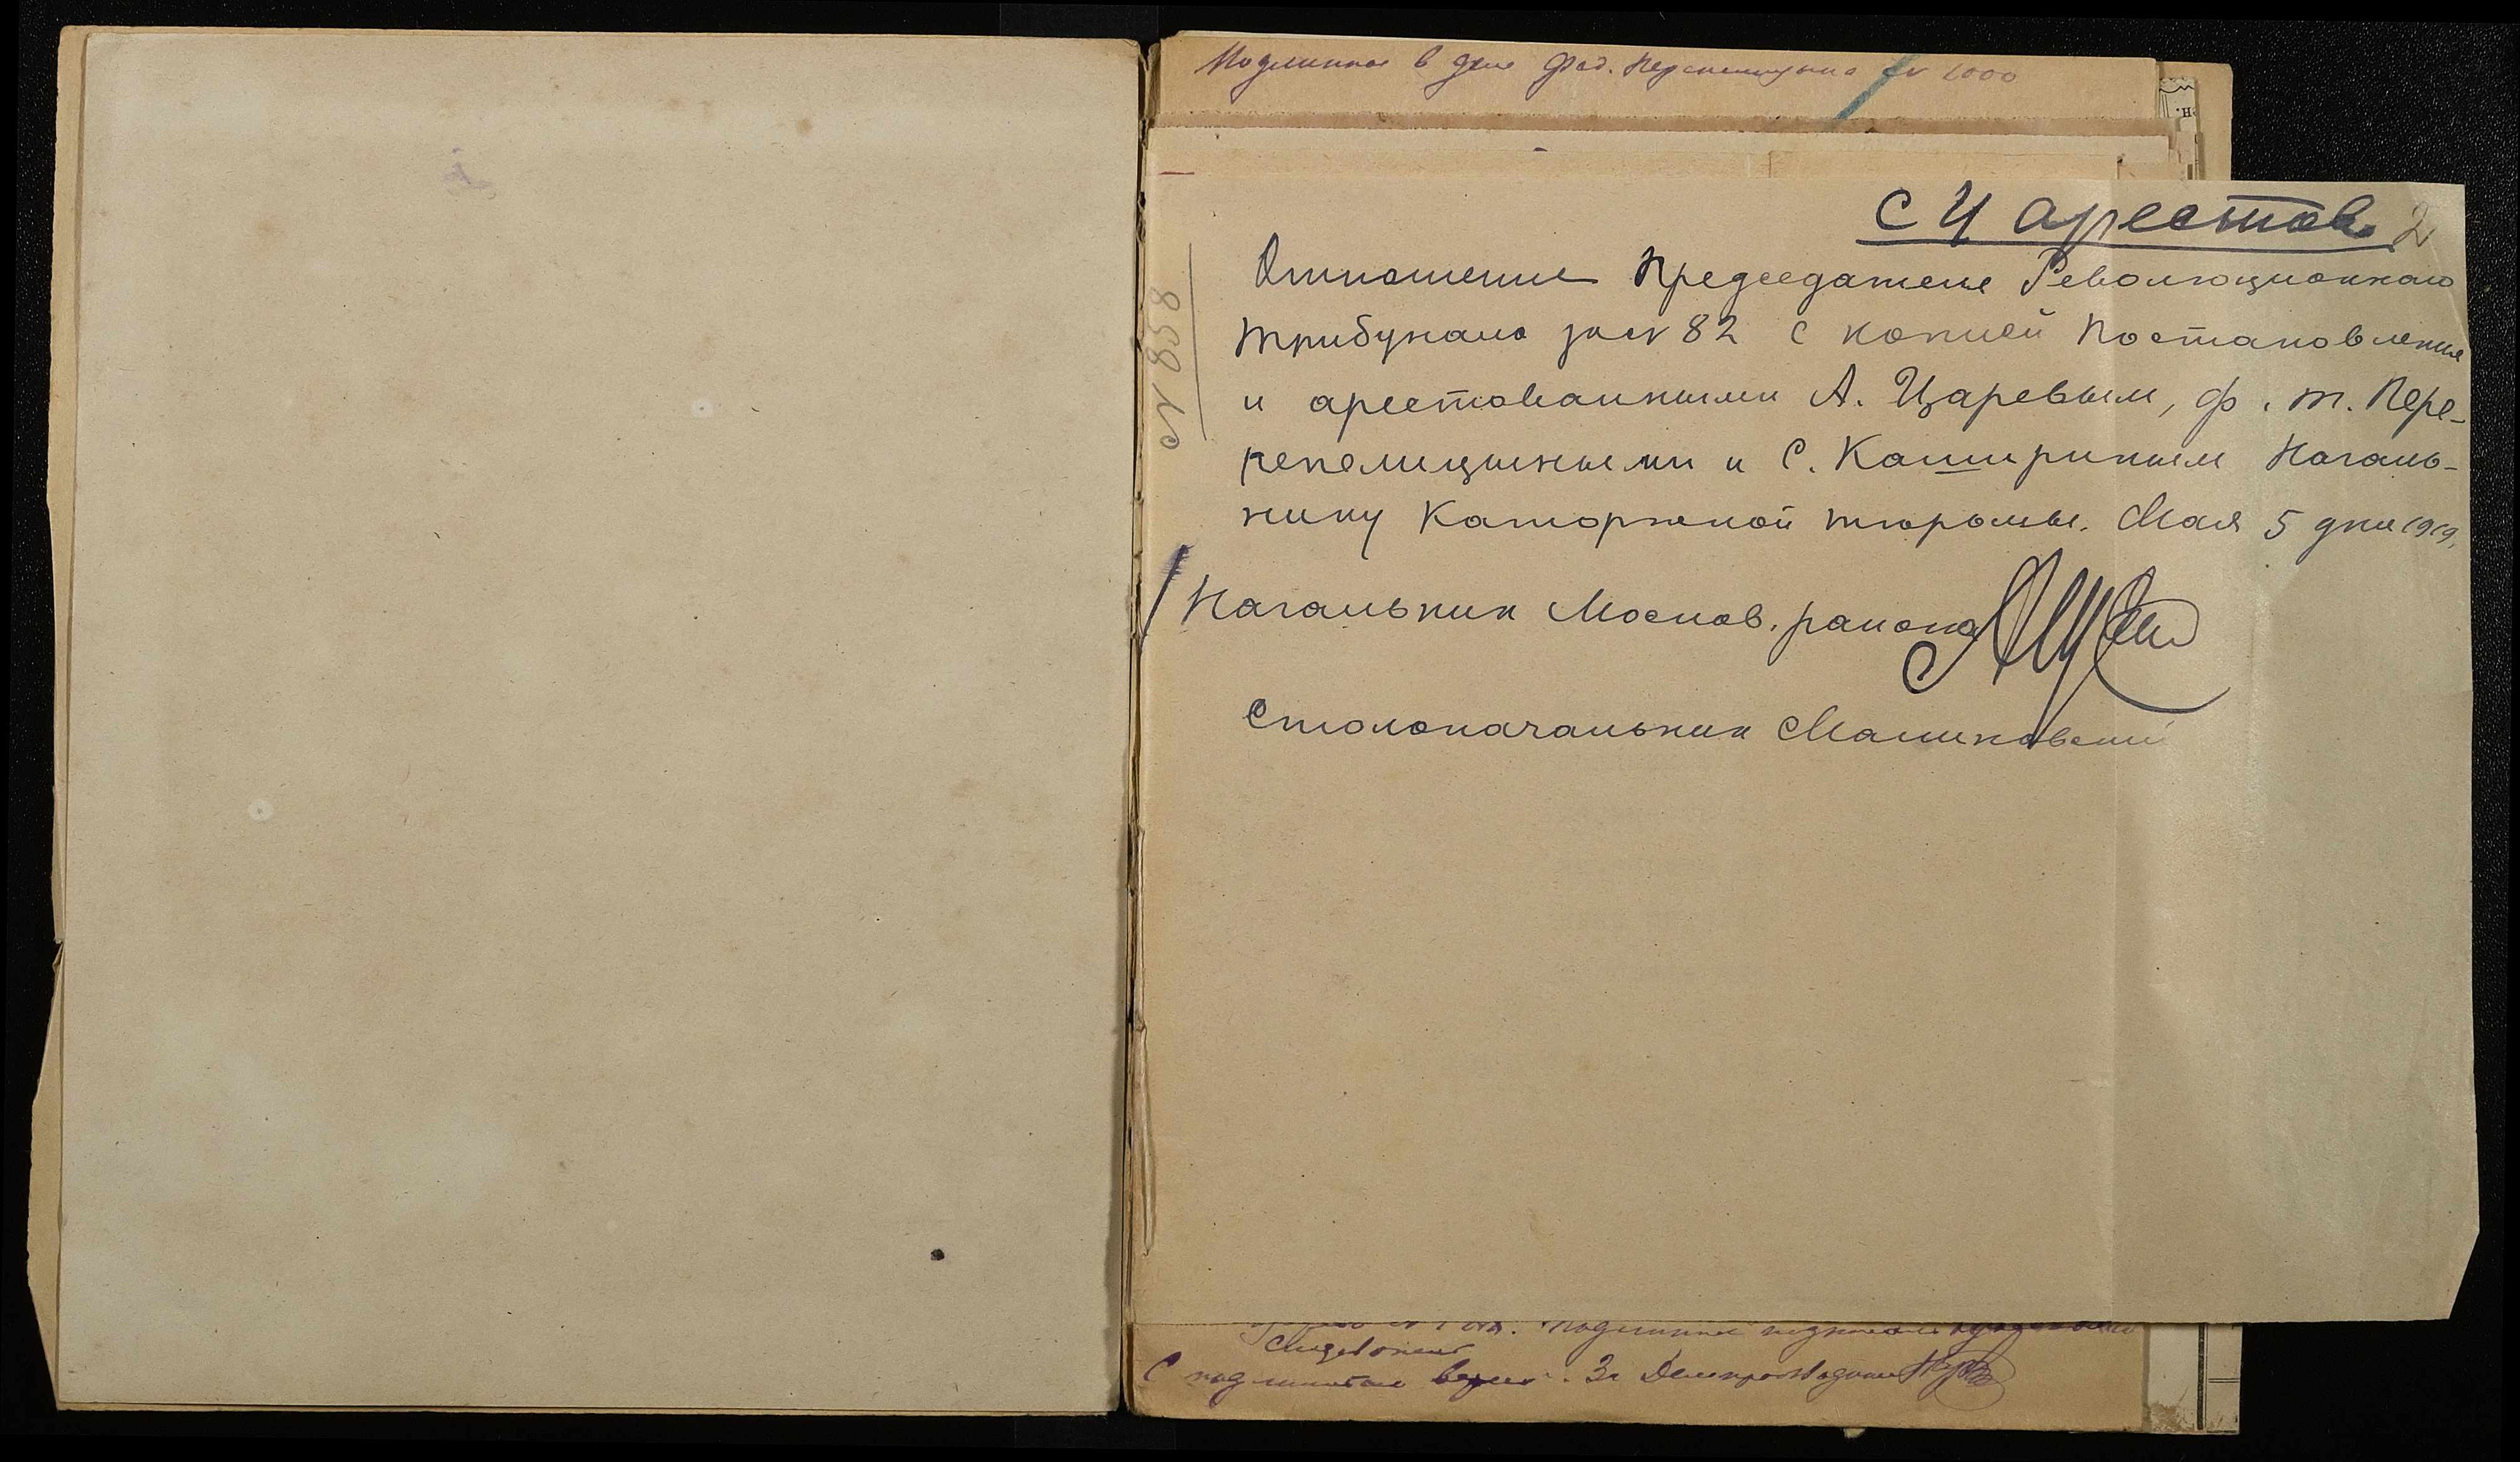 Подлинное в деле Фад. Перепелицына № 1000
с 4 арестов. 2
Отношение Председателя Революционнаго
трибунала за № 82 с копией Постановления
и арестованными А. Царевым, Ф. и Т. Пере-
репелицыными и С. Кашириным Началь-
нику Каторжной тюрьмы. Мая 5 дня 1919.
№ 8598
Начальник Москов. района
Столоначальник Машковский
Подлинное
С подлинным верно. За Делопроизводителя